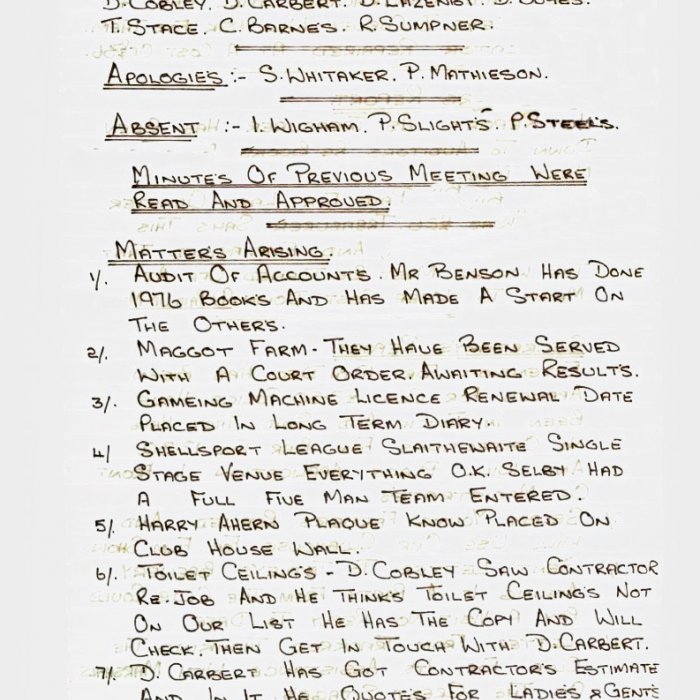 D. COBLEY. D. CARBERT. D. LAZENBY. D.
T. STACE. C. BARNES. R. SUMPNER.
APOLOGIE'S :- S. WHITAKER. P. MATHIESON.
ABSENT :- I. WIGHAM. P. SLIGHT'S. P. STEEL'S.
MINUTE'S OF PREVIOUS MEETING WERE
READ AND APPROVED.
MATTER'S ARISING.
1/. AUDIT OF ACCOUNT'S. MR BENSON HAS DONE
1976 BOOK'S AND HAS MADE A START ON
THE OTHER'S.
2/. MAGGOT FARM - THEY HAVE BEEN SERVED
WITH A COURT ORDER. AWAITING RESULT'S.
3/. GAMEING MACHINE LICENCE RENEWAL DATE
PLACED IN LONG TERM DIARY.
4/ SHELLSPORT LEAGUE SLAITHEWAITE SINGLE
STAGE VENUE EVERYTHING O.K. SELBY HAD
A FULL FIVE MAN TEAM ENTERED.
5/. HARRY AHERN PLAQUE KNOW PLACED ON
CLUB HOUSE WALL.
6/. TOILET CEILING'S - D. COBLEY SAW CONTRACTOR
RE-JOB AND HE THINKS TOILET CEILING'S NOT
ON OUR LIST HE HAS THE COPY AND WILL
CHECK THEN GET IN TOUCH WITH D. CARBERT.
7/. D. CARBERT HAS GOT CONTRACTOR'S ESTIMATE
AND IN IT HE QUOTES FOR LADIE'S & GENT'S